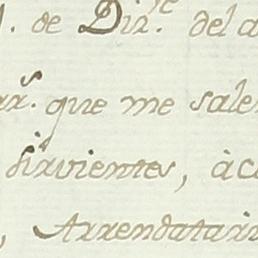 . de Dir.re del a
rr.s que me sale
sirvientes, àc
, Arrendatari